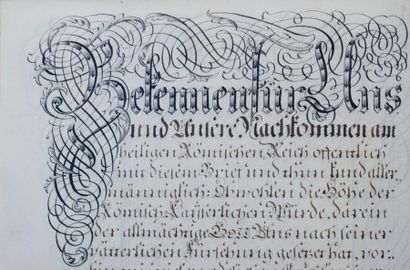 Bekennen für Uns
und Unsere Nachkommen am
heiligen Römischen Reich offentlich
mit diesem Brief und thun kund aller
männiglich: Obwohlen die Höhe der
Römisch Kayserlichen Würde, darein
der allmächtige Gott Uns nach seiner
vätterlichen Fürsehung gesezet hat, vor,